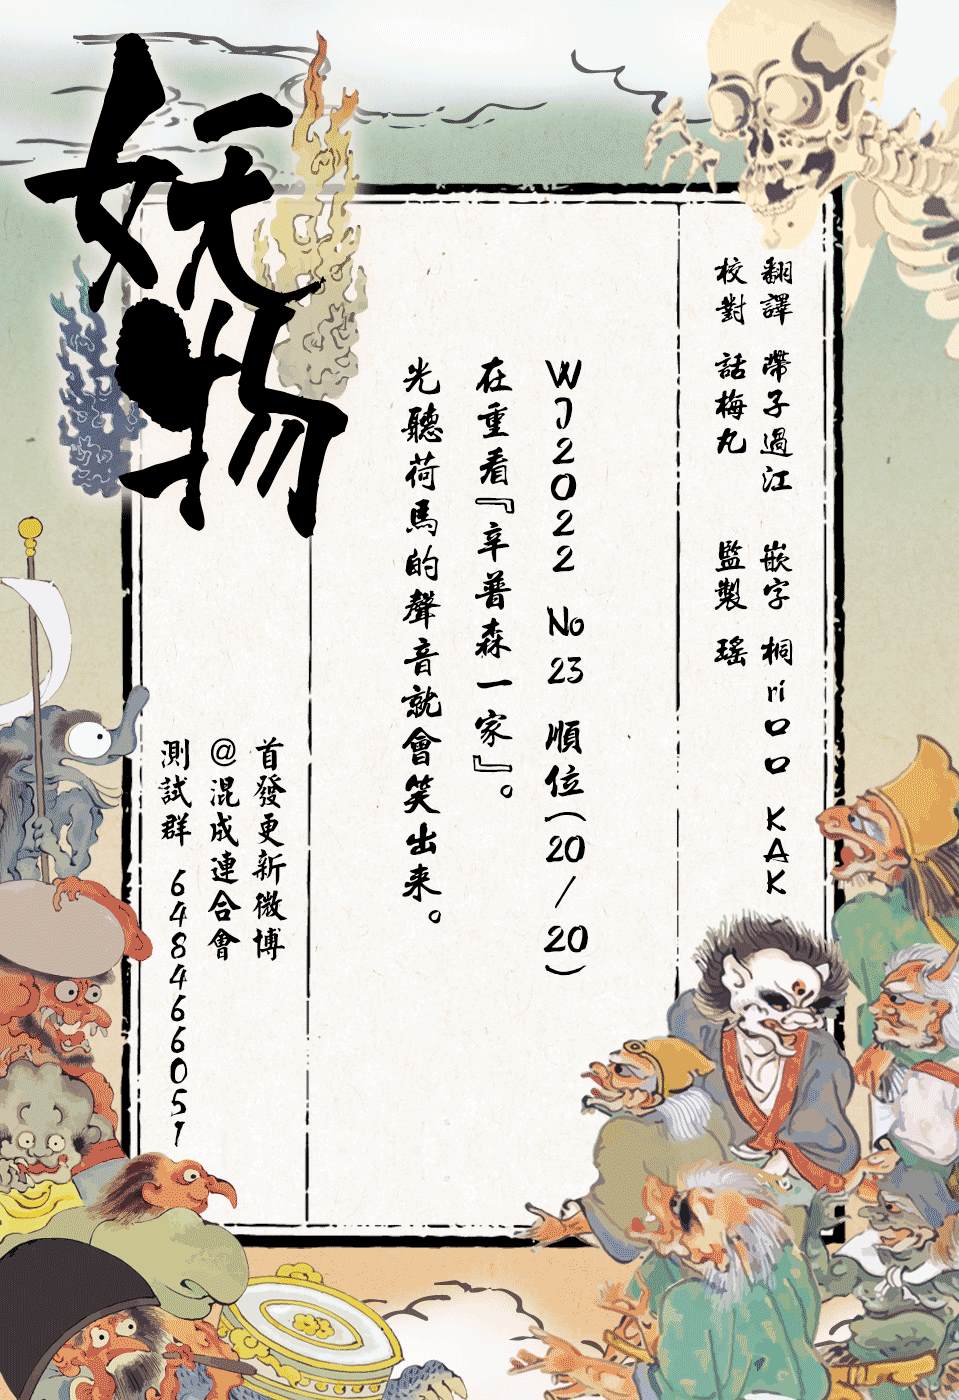 妖物
翻譯 帶子過江 嵌字 桐ri口口 KAK
校對 話梅丸 監製 瑤
WJ2022 No 23 順位(20/20)
在重看『辛普森一家』。
光聽荷馬的聲音就會笑出来。
首發更新微博
@混成連合會
測試群 648466051